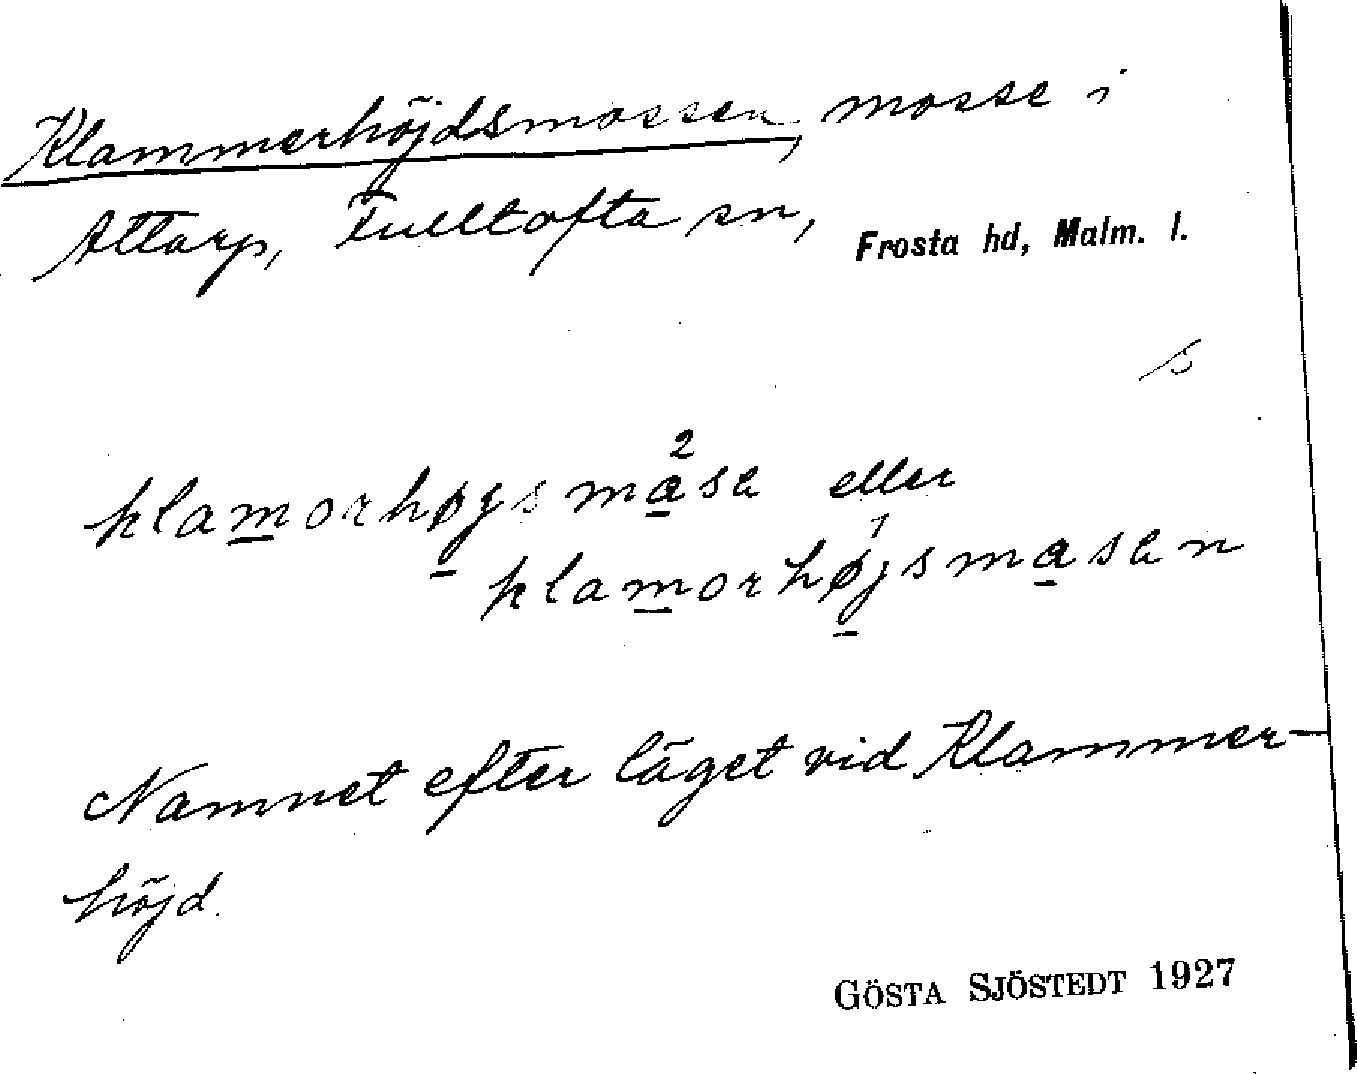 Klammerhöjdsmossen, mosse i
Attarp, Fulltofta sn, Frosta hd, Malm. l.
s
klamorhøjsmase eller
klamorhøjsmasen
Namnet efter läget vid Klammer-
höjd.
GÖSTA SJÖSTEDT 1927